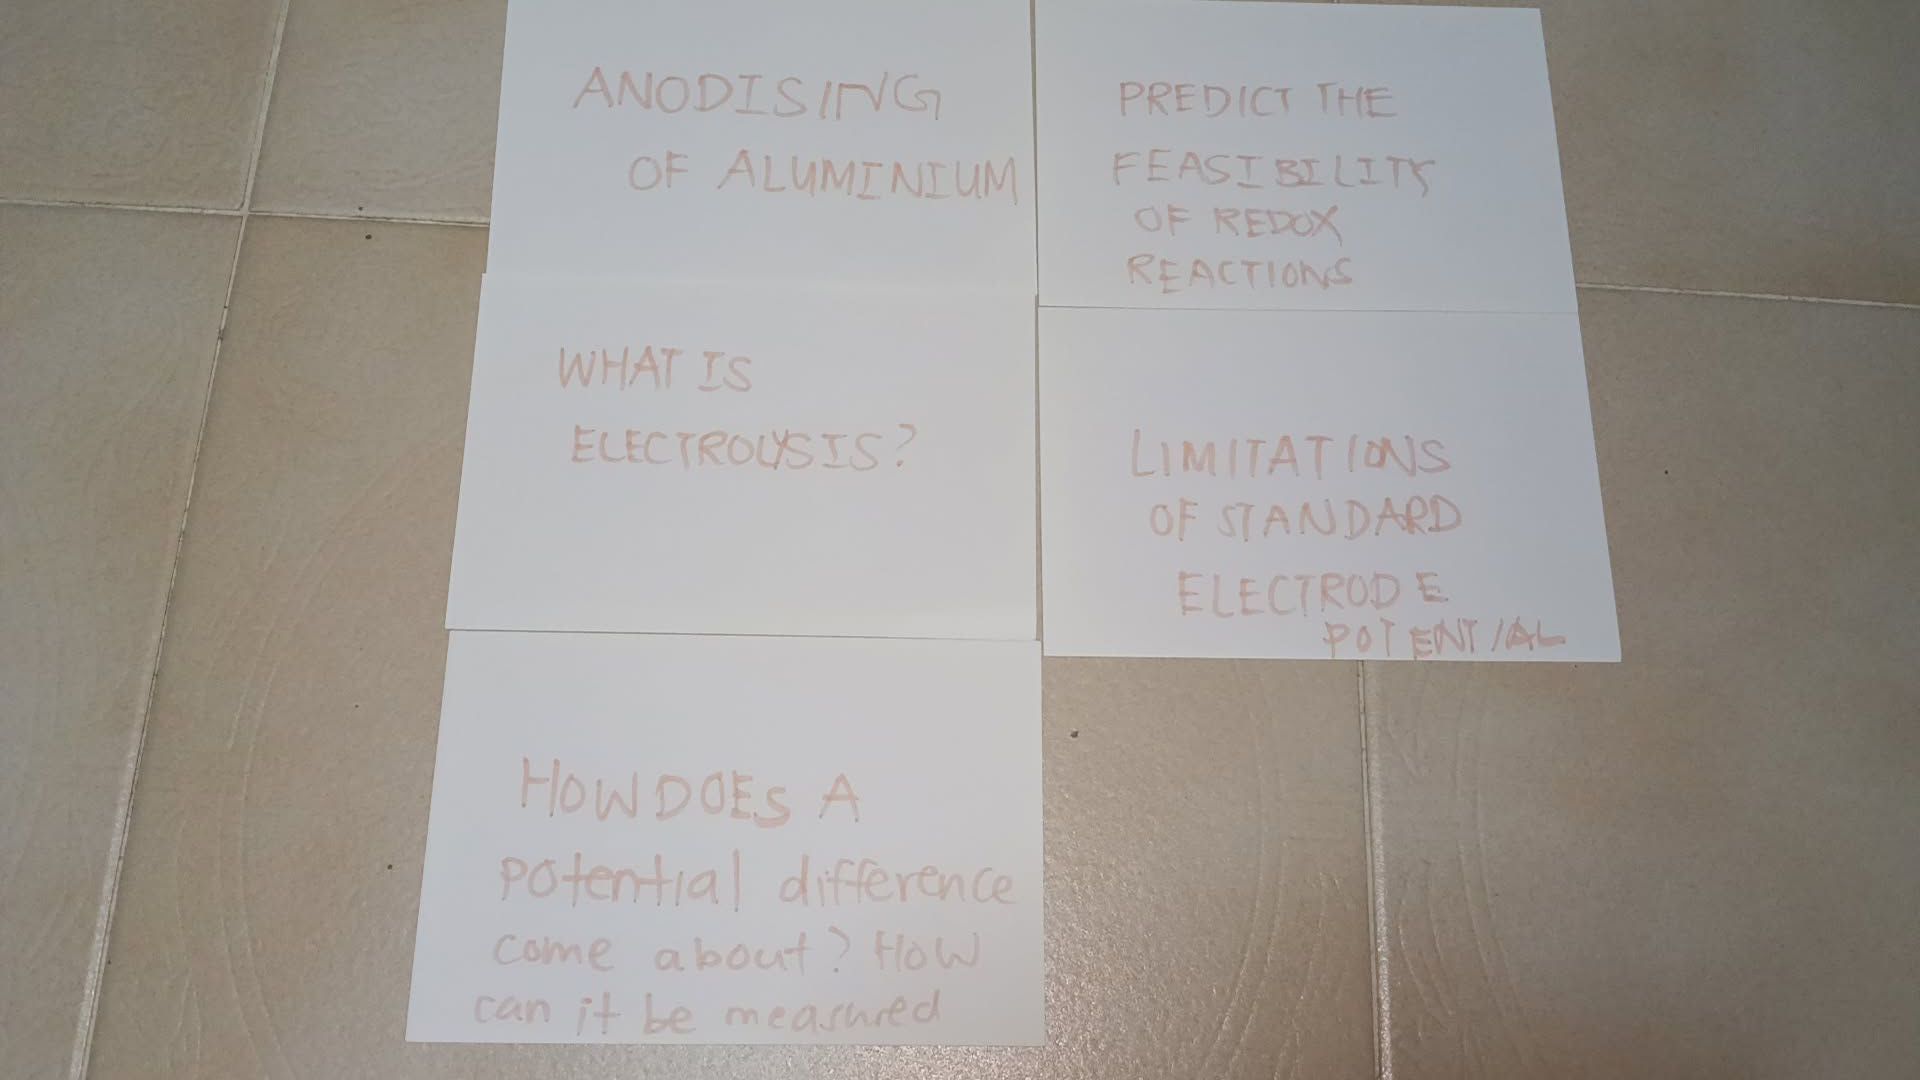 ANODISING
OF ALUMINIUM
PREDICT THE
FEASIBILITY
OF REDOX
REACTIONS
WHAT IS
ELECTROLYSIS?
LIMITATIONS
OF STANDARD
ELECTRODE
POTENTIAL
HOW DOES A
potential difference
come about? How
can it be measured